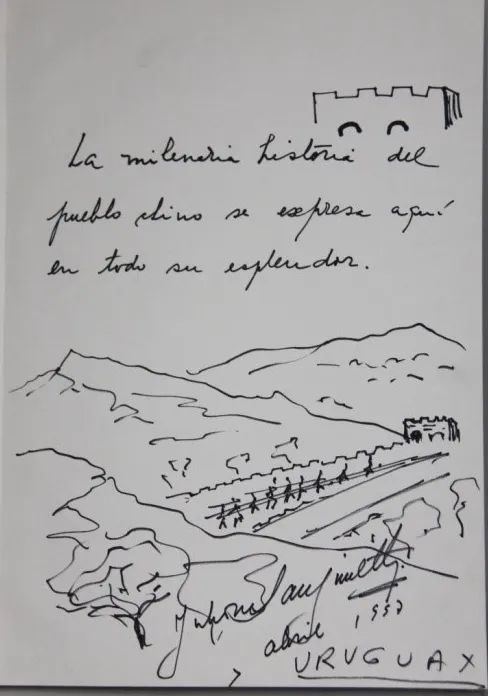 La milenaria historia del
pueblo chino se expresa aquí
en todo su esplendor.
Julio Ma Sanguinetti
abril 1997
URUGUAY